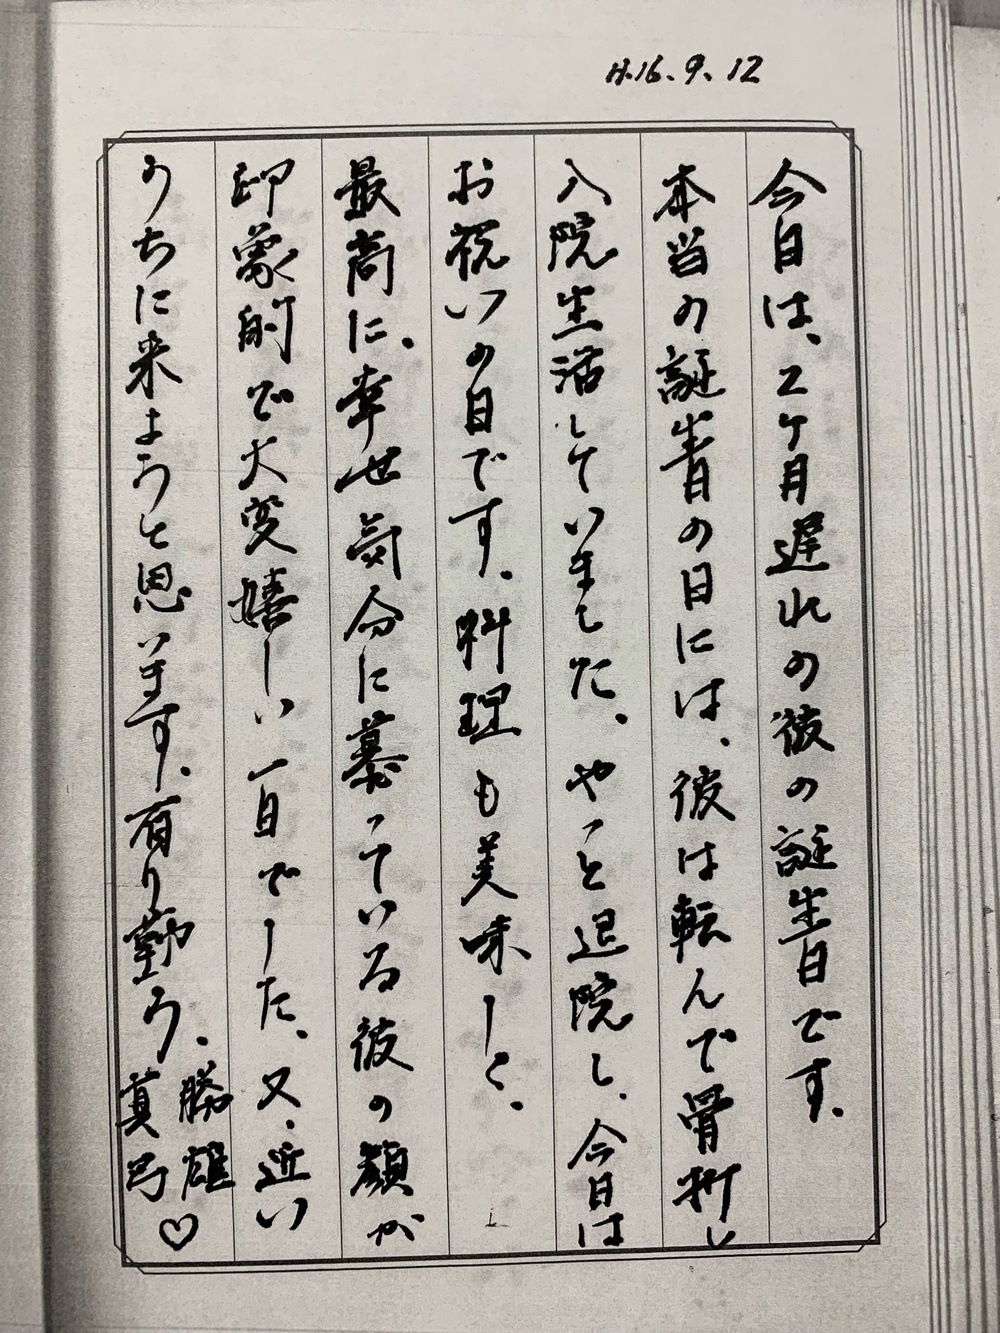 H.16.9.12
今日は、2ヶ月遅れの彼の誕生日です。
本当の誕生日の日には、彼は転んで骨折し
入院生活していました。やっと退院し、今日は
お祝いの日です。料理も美味しく、
最高に、幸せ気分に慕っている彼の顔が
印象的で大変嬉しい一日でした、又、近い
うちに来ようと思います。有り難う、
勝雄
真弓♡